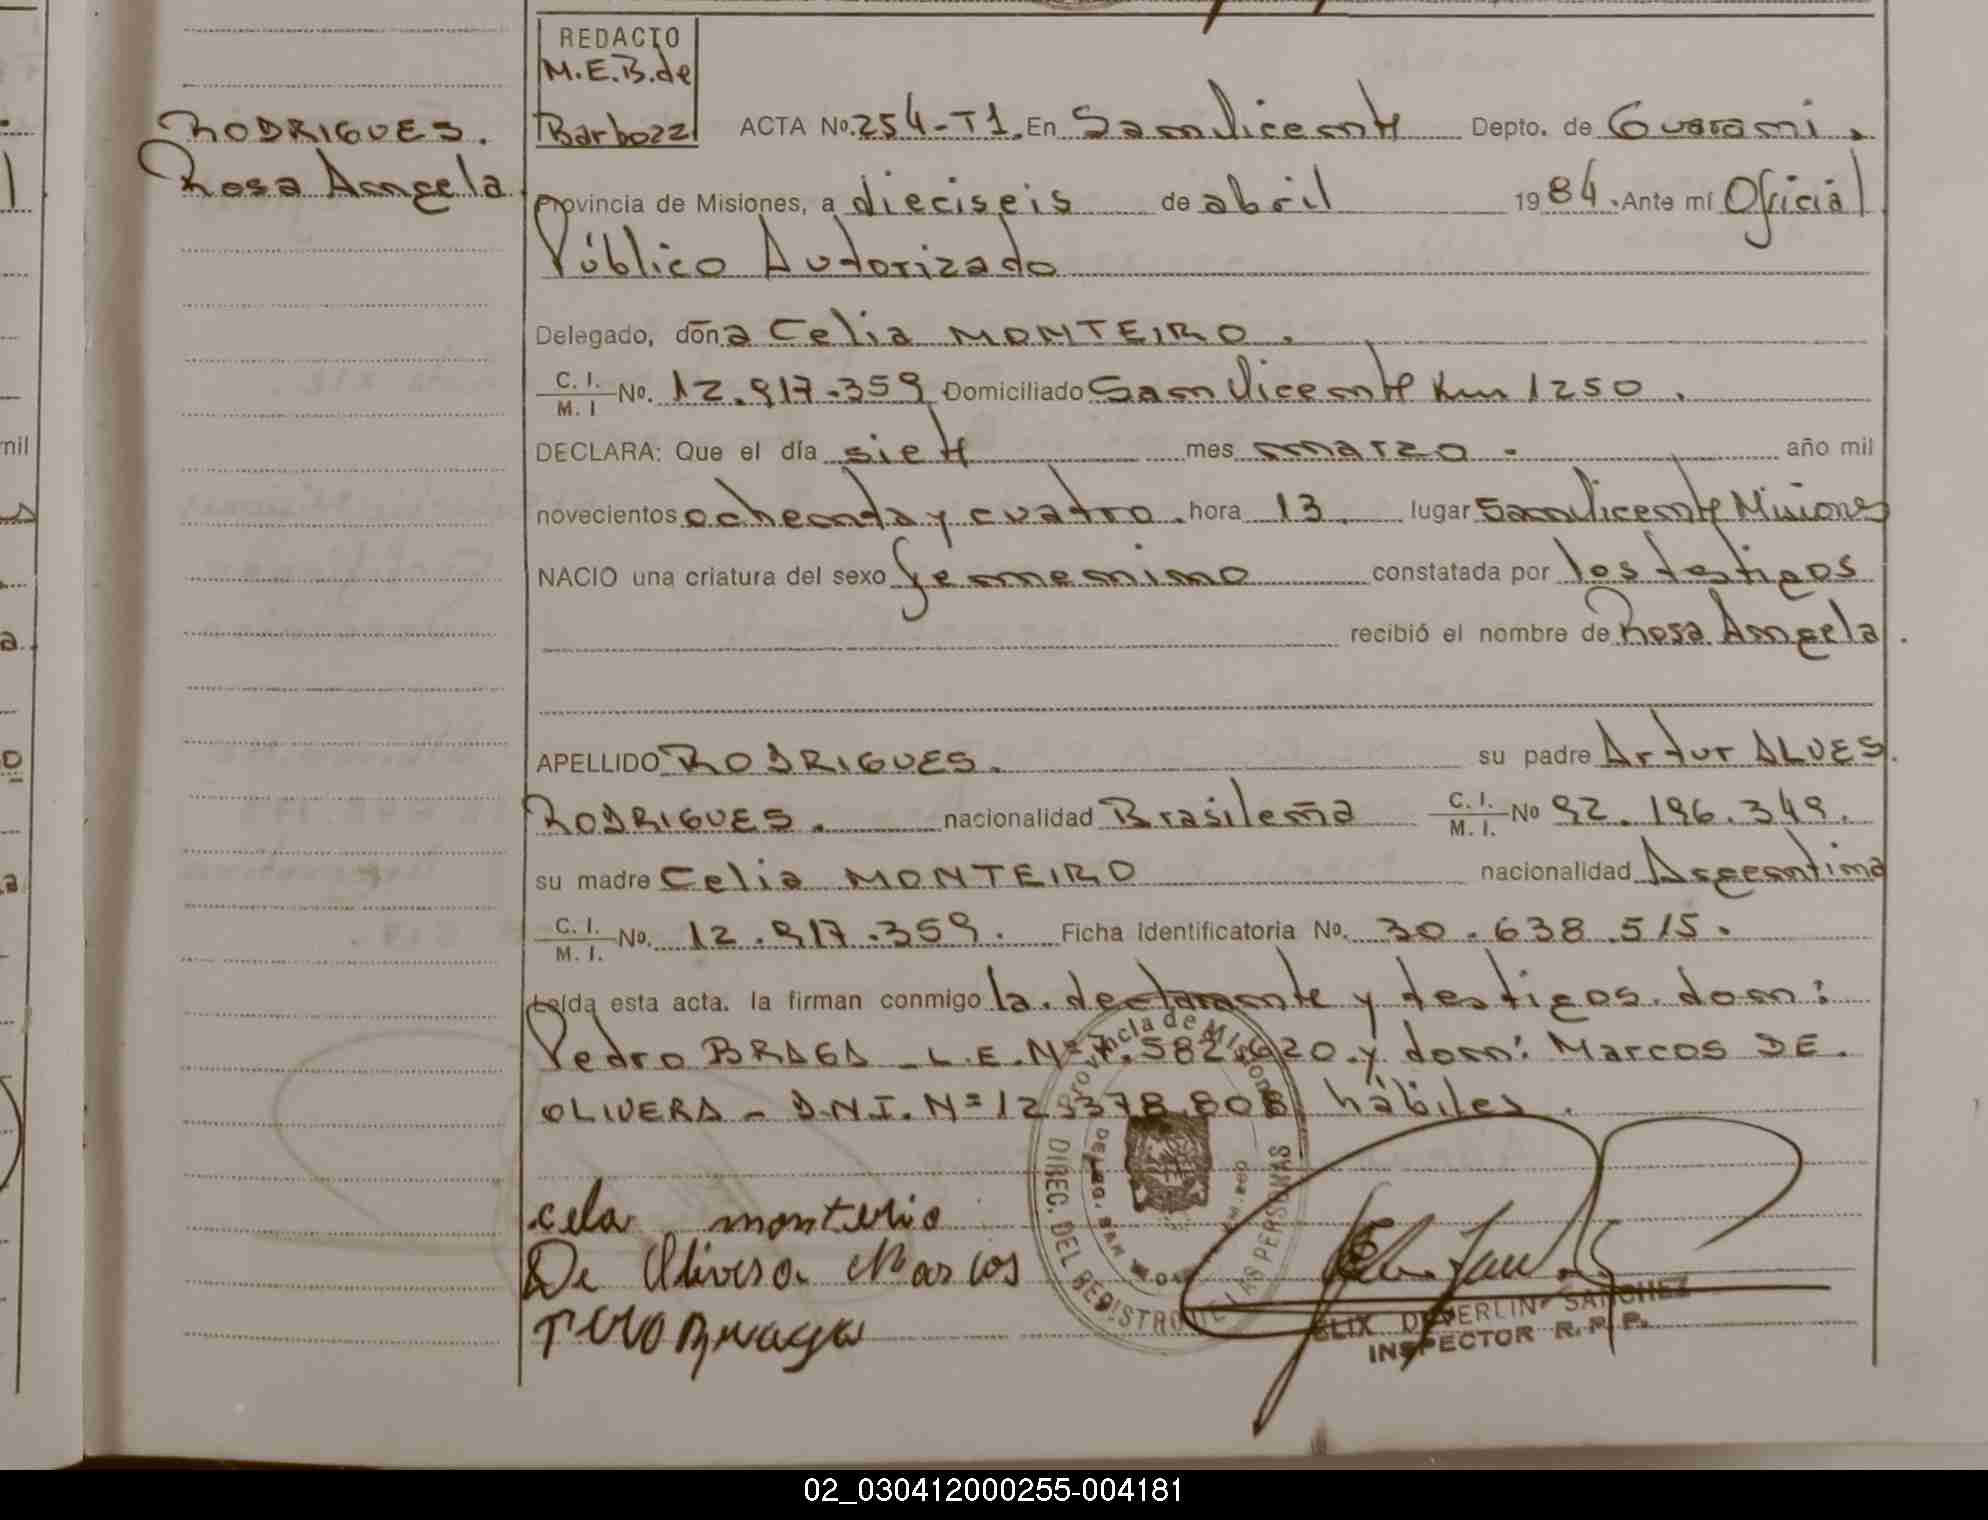 RODRIGUES.
Rosa Angela
REDACTO
M.E.B. de
Barboza
ACTA No. 254-T1. En San Vicente Depto. de Guarani.
Provincia de Misiones, a dieciseis de abril 1984. Ante mí Oficial
Público Autorizado
Delegado, doña Celia MONTEIRO.
C. I. / M. I No. 12.917.359 Domiciliado San Vicente Km 1250.
DECLARA: Que el día siete mes marzo. año mil
novecientos ochenta y cuatro. hora 13. lugar San Vicente Misiones
NACIO una criatura del sexo femenino constatada por los testigos
recibió el nombre de Rosa Angela.
APELLIDO RODRIGUES. su padre Artur ALVES.
RODRIGUES. nacionalidad Brasileña C. I. / M. I. No 92.196.349.
su madre Celia MONTEIRO nacionalidad Argentina
C. I. / M. I. No. 12.917.359. Ficha Identificatoria No. 30.638.515.
Leída esta acta. la firman conmigo la declarante y testigos don:
Pedro BRAGA - L.E. Nº 7.582.620. y don: Marcos DE.
OLIVERA - D.N.I. Nº 12.378.808. hábiles.
Provincia de Misiones
DIREC. DEL REGISTRO DE LAS PERSONAS
cela monterio
De Olivera Marcos
INSPECTOR R. P. P.
02_030412000255-004181